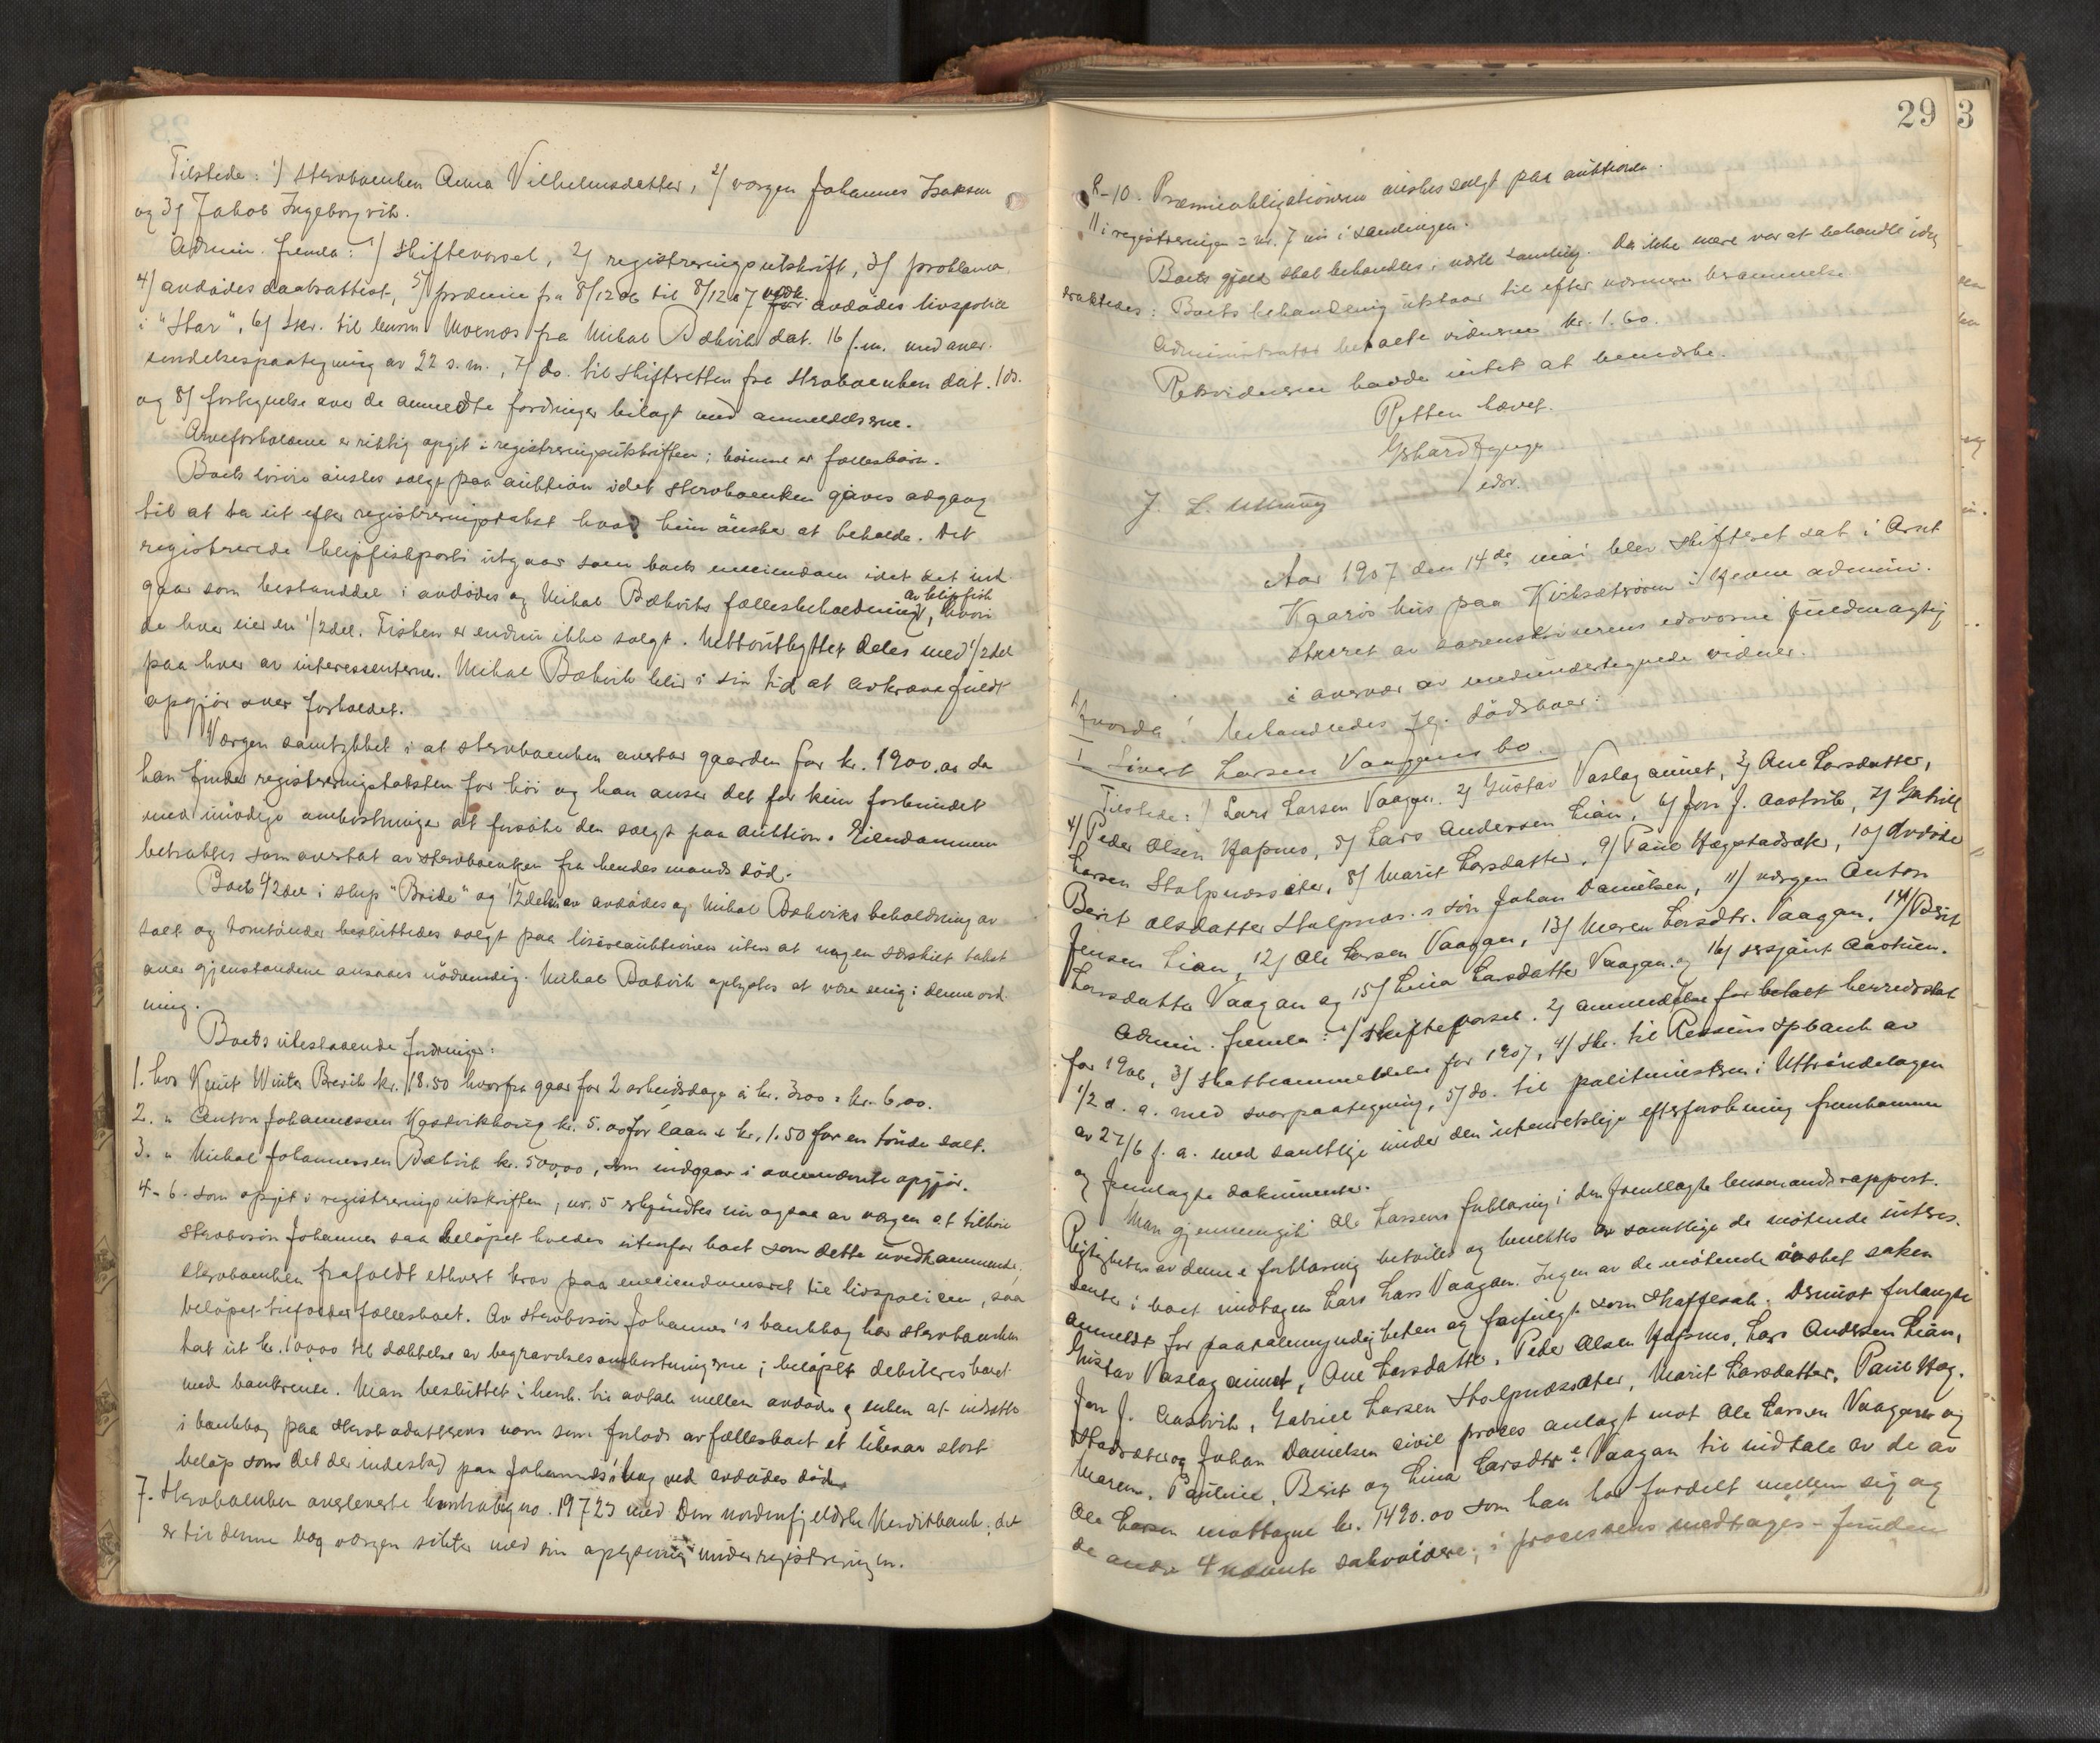 Tilstede: 1) Stervboenken Anna Vilhelmsdatter, 2) værgen Johannes Isaksen
og 3) Jakob Ingeborgvik.
Admin. fremla: 1) Skiftevarsel, 2) registreringsutskrift, 3) proklama
4) avdødes daabsattest, 5) præmie fra 8/12 06 til 8/12 07 vedk. avdødes livspolice
i "Star", 6) skr. til lensm. Moenæs fra Mikal Bækvik dat. 16 f.m. med aner-
kjendelsespaategning av 22 s.m., 7) do. til skifteretten fra stervboenken dat. 1 ds.
og 8) fortegnelse over de anmeldte fordringer bilagt med anmeldelserne.
Arveforholdene er riktig opgit i registreringsutskriften; børnene er fællesbørn.
Boets løsøre ønskes solgt paa auktion idet stervboenken gives adgang
til at ta ut efter registreringstakst hvad hun ønsker at beholde. Det
registrerede klipfiskparti utgaar som boets eneeiendom idet det ind-
gaar som bestanddel i avdødes og Mikal Bækviks fællesbeholdning av klipfisk, hvori
de hver eier en 1/2del. Fisken er endnu ikke solgt. Nettoutbyttet deles med 1/2del
paa hver av interessenterne. Mikal Bækvik blir i sin tid at avkræve fuldt
opgjør over forholdet.
Værgen samtykket i at stervboenken overtar gaarden for kr. 1900.00 da
han finder registreringstaksten for høi og han anser det for kun forbundet
med unødige omkostninger at forsøke den solgt paa auktion. Eiendommen
betraktes som overtat av stervboenken fra hendes mands død.
Boets 1/2del i slup "Bride" og 1/2delen av avdødes og Mikal Bækviks beholdning av
salt og tomtønder besluttedes solgt paa løsøreauktionen uten at nogen særskilt takst
over gjenstandene ansaaes nødvendig. Mikal Bækvik oplystes at være enig i denne ord-
ning.
Boets utestaaende fordringer:
1. hos Knut Winter Brevik kr. 18.50 hvorfra gaar for 2 arbeidsdage à kr. 3.00 = kr. 6.00.
2. " Anton Johannessen Kasvikhaug kr. 5.00 for laan + kr. 1.50 for en tønde salt.
3. " Mikal Johannessen Bækvik kr. 500.00, som indgaar i ovennævnte opgjør.
4-6. som opgit i registreringsutskriften, nr. 5 erkjendtes nu ogsaa av værgen at tilhøre
stervbosøn Johannes saa beløpet holdes utenfor boet som dette uvedkommende,
stervboenken frafaldt ethvert krav paa eneeiendomsret til livspolicen, saa
beløpet tilfalder fællesboet. Av stervbosøn Johannes's bankbog har stervboenken
tat ut kr. 100.00 til dækkelse av begravelsesomkostningerne; beløpet debiteres boet
med bankrente. Man besluttet i henh. til avtale mellem avdøde og enken at indsætte
i bankbog paa stervbodatterens navn som forlods av fællesboet et likesaa stort
beløp som det der indestod paa Johannes's bog ved avdødes død.
7. Stervboenken overleverte kontrabog no. 19723 med Den nordenfjeldske Kreditbank; det
er til denne bog værgen sikter med sin oplysning under registreringen.
29
3
8-10. Præmieobligationerne ønskes solgt paa auktionen.
11 i registreringen = nr. 7 nu i samlingen.
Boets gjæld skal behandles i næste samling. Da ikke mere var at behandle idag
Boets behandling utstaar til efter nærmere berammelse.
Administrator betalte vidnerne kr. 1.60.
Rekvirenten hadde intet at bemerke.
Retten hævet.
edsv.
Aar 1907 den 14de mai blev skifteret sat i Arnt
Kaarøs hus paa Kirksæterøren i Hevne admini-
streret av sorenskriverens edsvorne fuldmægtig
i overvær av medundertegnede vidner.
Hvorda! behandledes flg. dødsboer:
I Sivert Larsen Vaagans bo.
Tilstede: 1) Lars Larsen Vaagan, 2) Gustav Vaslagaunet, 3) Ane Larsdatter,
4) Peder Olsen Hafsmo, 5) Lars Andersen Lian, 6) Jon J. Aastvik, 7) Gabriel
Larsen Stolpnæssæter, 8) Marit Larsdatter, 9) Paul Hægstadsæter, 10) avdøde
Berit Olsdatter Stolpnæs's søn Johan Danielsen, 11) værgen Anton
Jensen Lian, 12) Ole Larsen Vaagan, 13) Maren Larsdtr. Vaagan, 14) Berit
Larsdatter Vaagan og 15) Lina Larsdatter Vaagan og 16) sersjant Aastun.
Admin. fremla: 1) Skiftevarsel, 2) anmeldelse for betalt herredsskat
for 1906, 3) skatteanmeldelse for 1907, 4) skr. til Ressens Spbank av
1/2 d.a. med svarpaategning, 5) do. til politimesteren i Uttrøndelagen
av 27/6 f.a. med samtlige under den utenretslige efterforskning fremkomne
og fremlagte dokumenter.
Man gjennemgik Ole Larsens forklaring i den fremlagte lensmandsrapport.
Rigtigheten av denne forklaring betviles og benektes av samtlige de møtende interes-
senter i boet undtagen Lars Lars. Vaagan. Ingen av de møtende ønsket saken
anmeldt for paatalemyndigheten og forfulgt som straffesak. Derimot forlangte
Gustav Vaslagaunet, Ane Larsdatter, Peder Olsen Hafsmo, Lars Andersen Lian,
Jon J. Aastvik, Gabriel Larsen Stolpnæssæter, Marit Larsdatter, Paul Hæg-
stadsæter og Johan Danielsen civil proces anlagt mot Ole Larsen Vaagan og
Maren, Pauline, Berit og Lina Larsdtr.e Vaagan til indtale av de av
Ole Larsen mottagne kr. 1490.00 som han har fordelt mellem sig og
de andre 4 nævnte saksøkte; i processens medtages